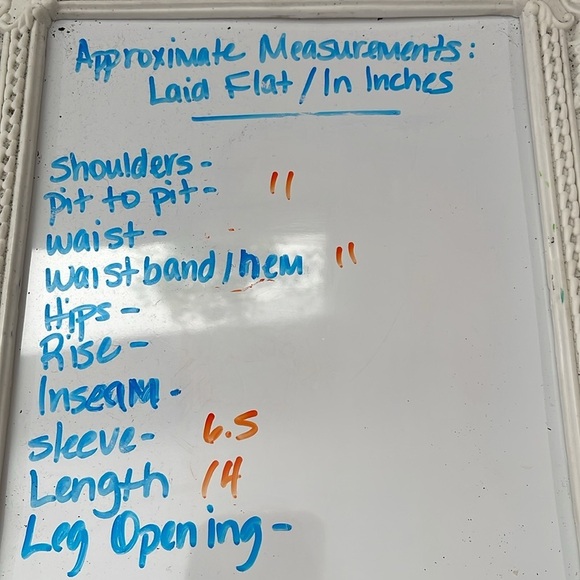 Approximate Measurements:
Laid Flat / In Inches
Shoulders -
pit to pit - 11
waist -
waistband / hem 11
Hips -
Rise -
Inseam -
sleeve - 6.5
Length 14
Leg Opening -